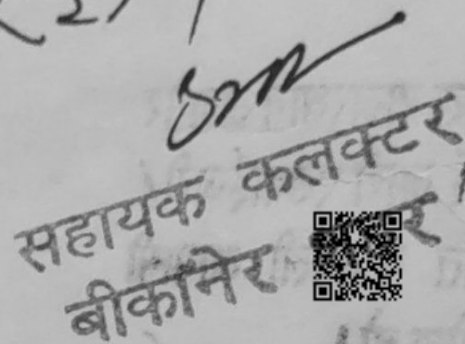 (2)
सहायक कलक्टर
बीकानेर